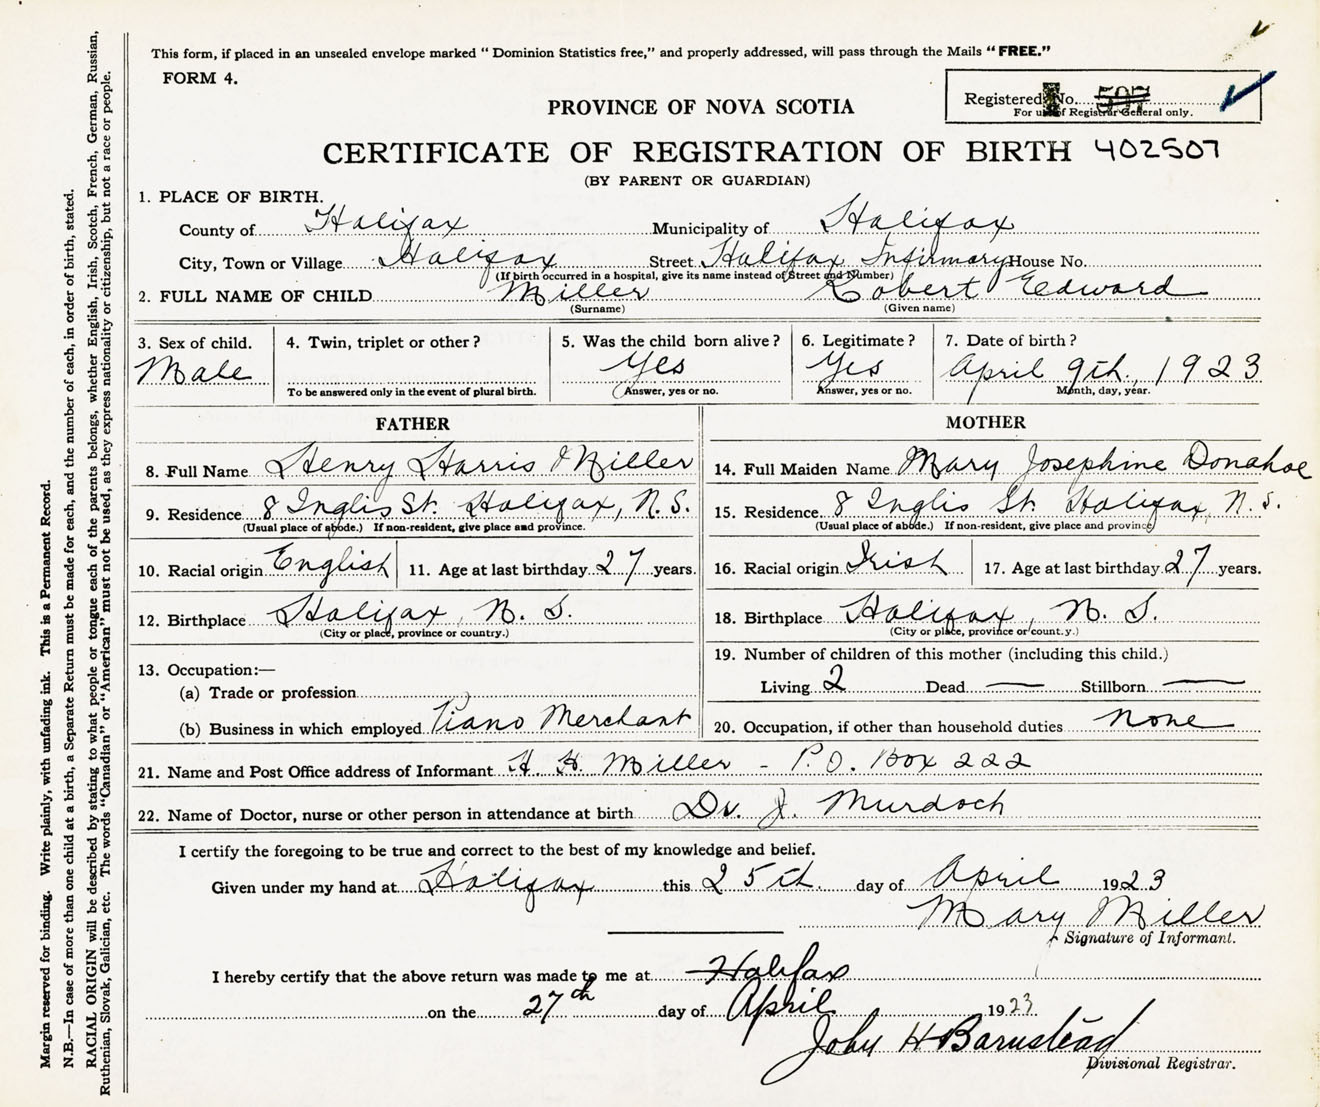 This form, if placed in an unsealed envelope marked "Dominion Statistics free," and properly addressed, will pass through the Mails "FREE."
FORM 4.
Registered No. 507
For use of Registrar General only.
PROVINCE OF NOVA SCOTIA
CERTIFICATE OF REGISTRATION OF BIRTH 402507
(BY PARENT OR GUARDIAN)
1. PLACE OF BIRTH.
County of Halifax Municipality of Halifax
City, Town or Village Halifax Street Halifax Infirmary House No.
(If birth occurred in a hospital, give its name instead of Street and Number)
2. FULL NAME OF CHILD Miller Robert Edward
(Surname) (Given name)
3. Sex of child. 4. Twin, triplet or other? 5. Was the child born alive? 6. Legitimate? 7. Date of birth?
Male Yes Yes April 9th, 1923
To be answered only in the event of plural birth. Answer, yes or no. Answer, yes or no. Month, day, year.
FATHER MOTHER
8. Full Name Henry Harris Miller 14. Full Maiden Name Mary Josephine Donahoe
9. Residence 8 Inglis St. Halifax, N.S. 15. Residence 8 Inglis St. Halifax, N.S.
(Usual place of abode.) If non-resident, give place and province. (Usual place of abode.) If non-resident, give place and province)
10. Racial origin English 11. Age at last birthday 27 years. 16. Racial origin Irish 17. Age at last birthday 27 years.
12. Birthplace Halifax, N. S. 18. Birthplace Halifax, N. S.
(City or place, province or country.) (City or place, province or count.y.)
13. Occupation:— 19. Number of children of this mother (including this child.)
(a) Trade or profession Living 2 Dead — Stillborn —
(b) Business in which employed Piano Merchant 20. Occupation, if other than household duties none
21. Name and Post Office address of Informant H. H. Miller - P.O. Box 222
22. Name of Doctor, nurse or other person in attendance at birth Dr. J. Murdoch
I certify the foregoing to be true and correct to the best of my knowledge and belief.
Given under my hand at Halifax this 25th. day of April 1923
Mary Miller
Signature of Informant.
I hereby certify that the above return was made to me at Halifax
on the 27th day of April 1923
John H Barnstead
Divisional Registrar.
Margin reserved for binding. Write plainly, with unfading ink. This is a Permanent Record.
N.B.—In case of more than one child at a birth, a Separate Return must be made for each, and the number of each, in order of birth, stated.
RACIAL ORIGIN will be described by stating to what people or tongue each of the parents belongs, whether English, Irish, Scotch, French, German, Russian,
Ruthenian, Slovak, Galician, etc. The words "Canadian" or "American" must not be used, as they express nationality or citizenship, but not a race or people.